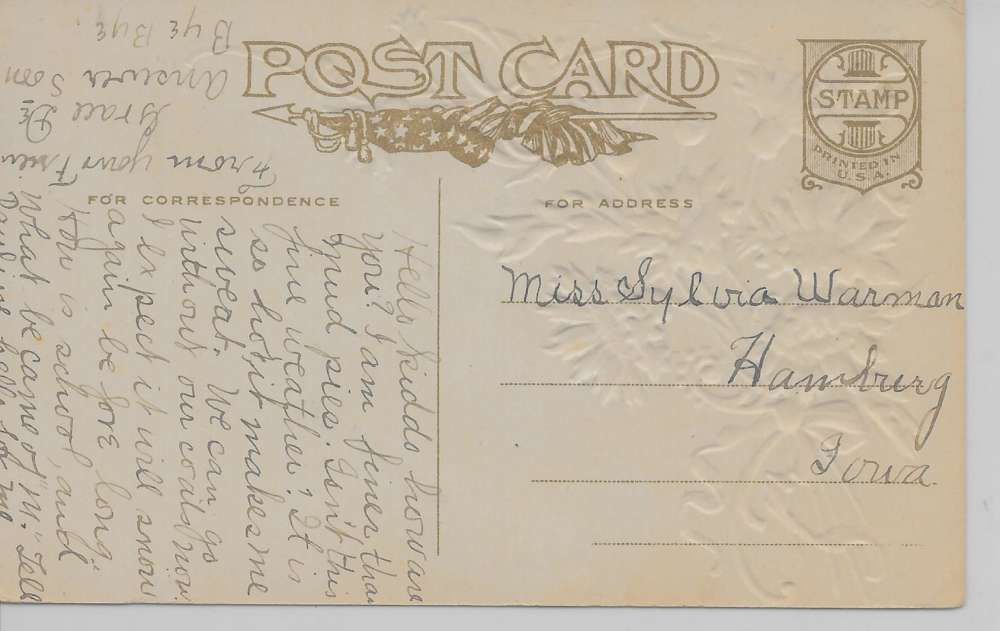 POST CARD
STAMP
PRINTED IN
U.S.A.
FOR CORRESPONDENCE
FOR ADDRESS
Miss Sylvia Warman
Hamburg
Iowa.
Hello Kiddo how are
you? I am finer than
mud pies. Isn't this
fine weather? It is
so hot it makes me
sweat. We can go
without our coats now.
I expect it will snow
again before long
How is school, and
What became of "M." Tell
hello for me
From your
Grace
answer soon
Bye Bye